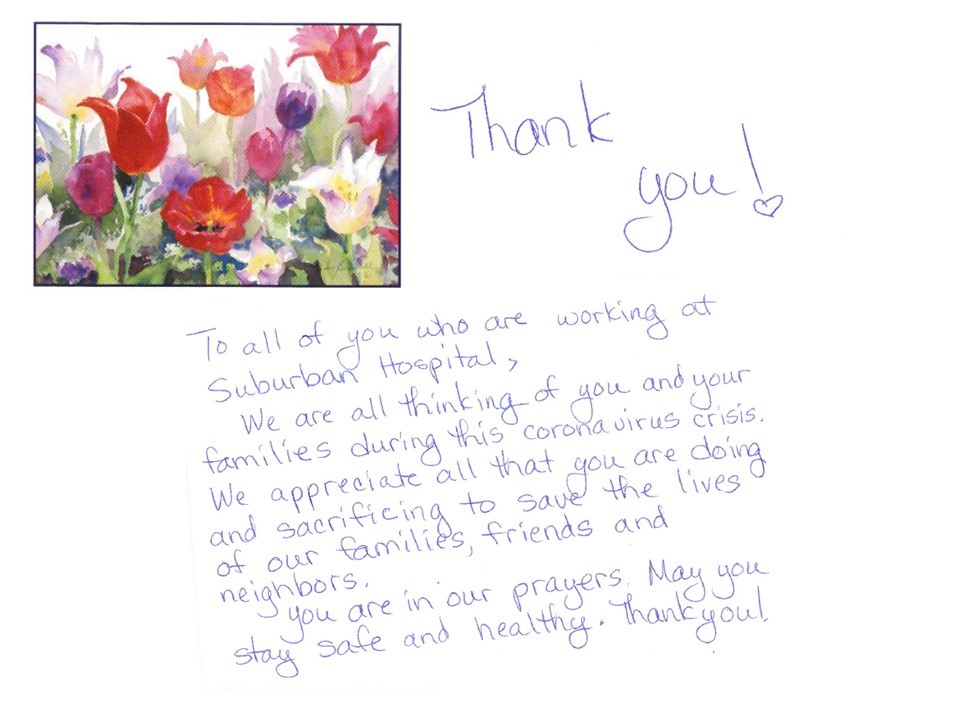 Thank
you!
To all of you who are working at
Suburban Hospital,
We are all thinking of you and your
families during this coronavirus crisis.
We appreciate all that you are doing
and sacrificing to save the lives
of our families, friends and
neighbors.
You are in our prayers. May you
stay safe and healthy. Thank you!